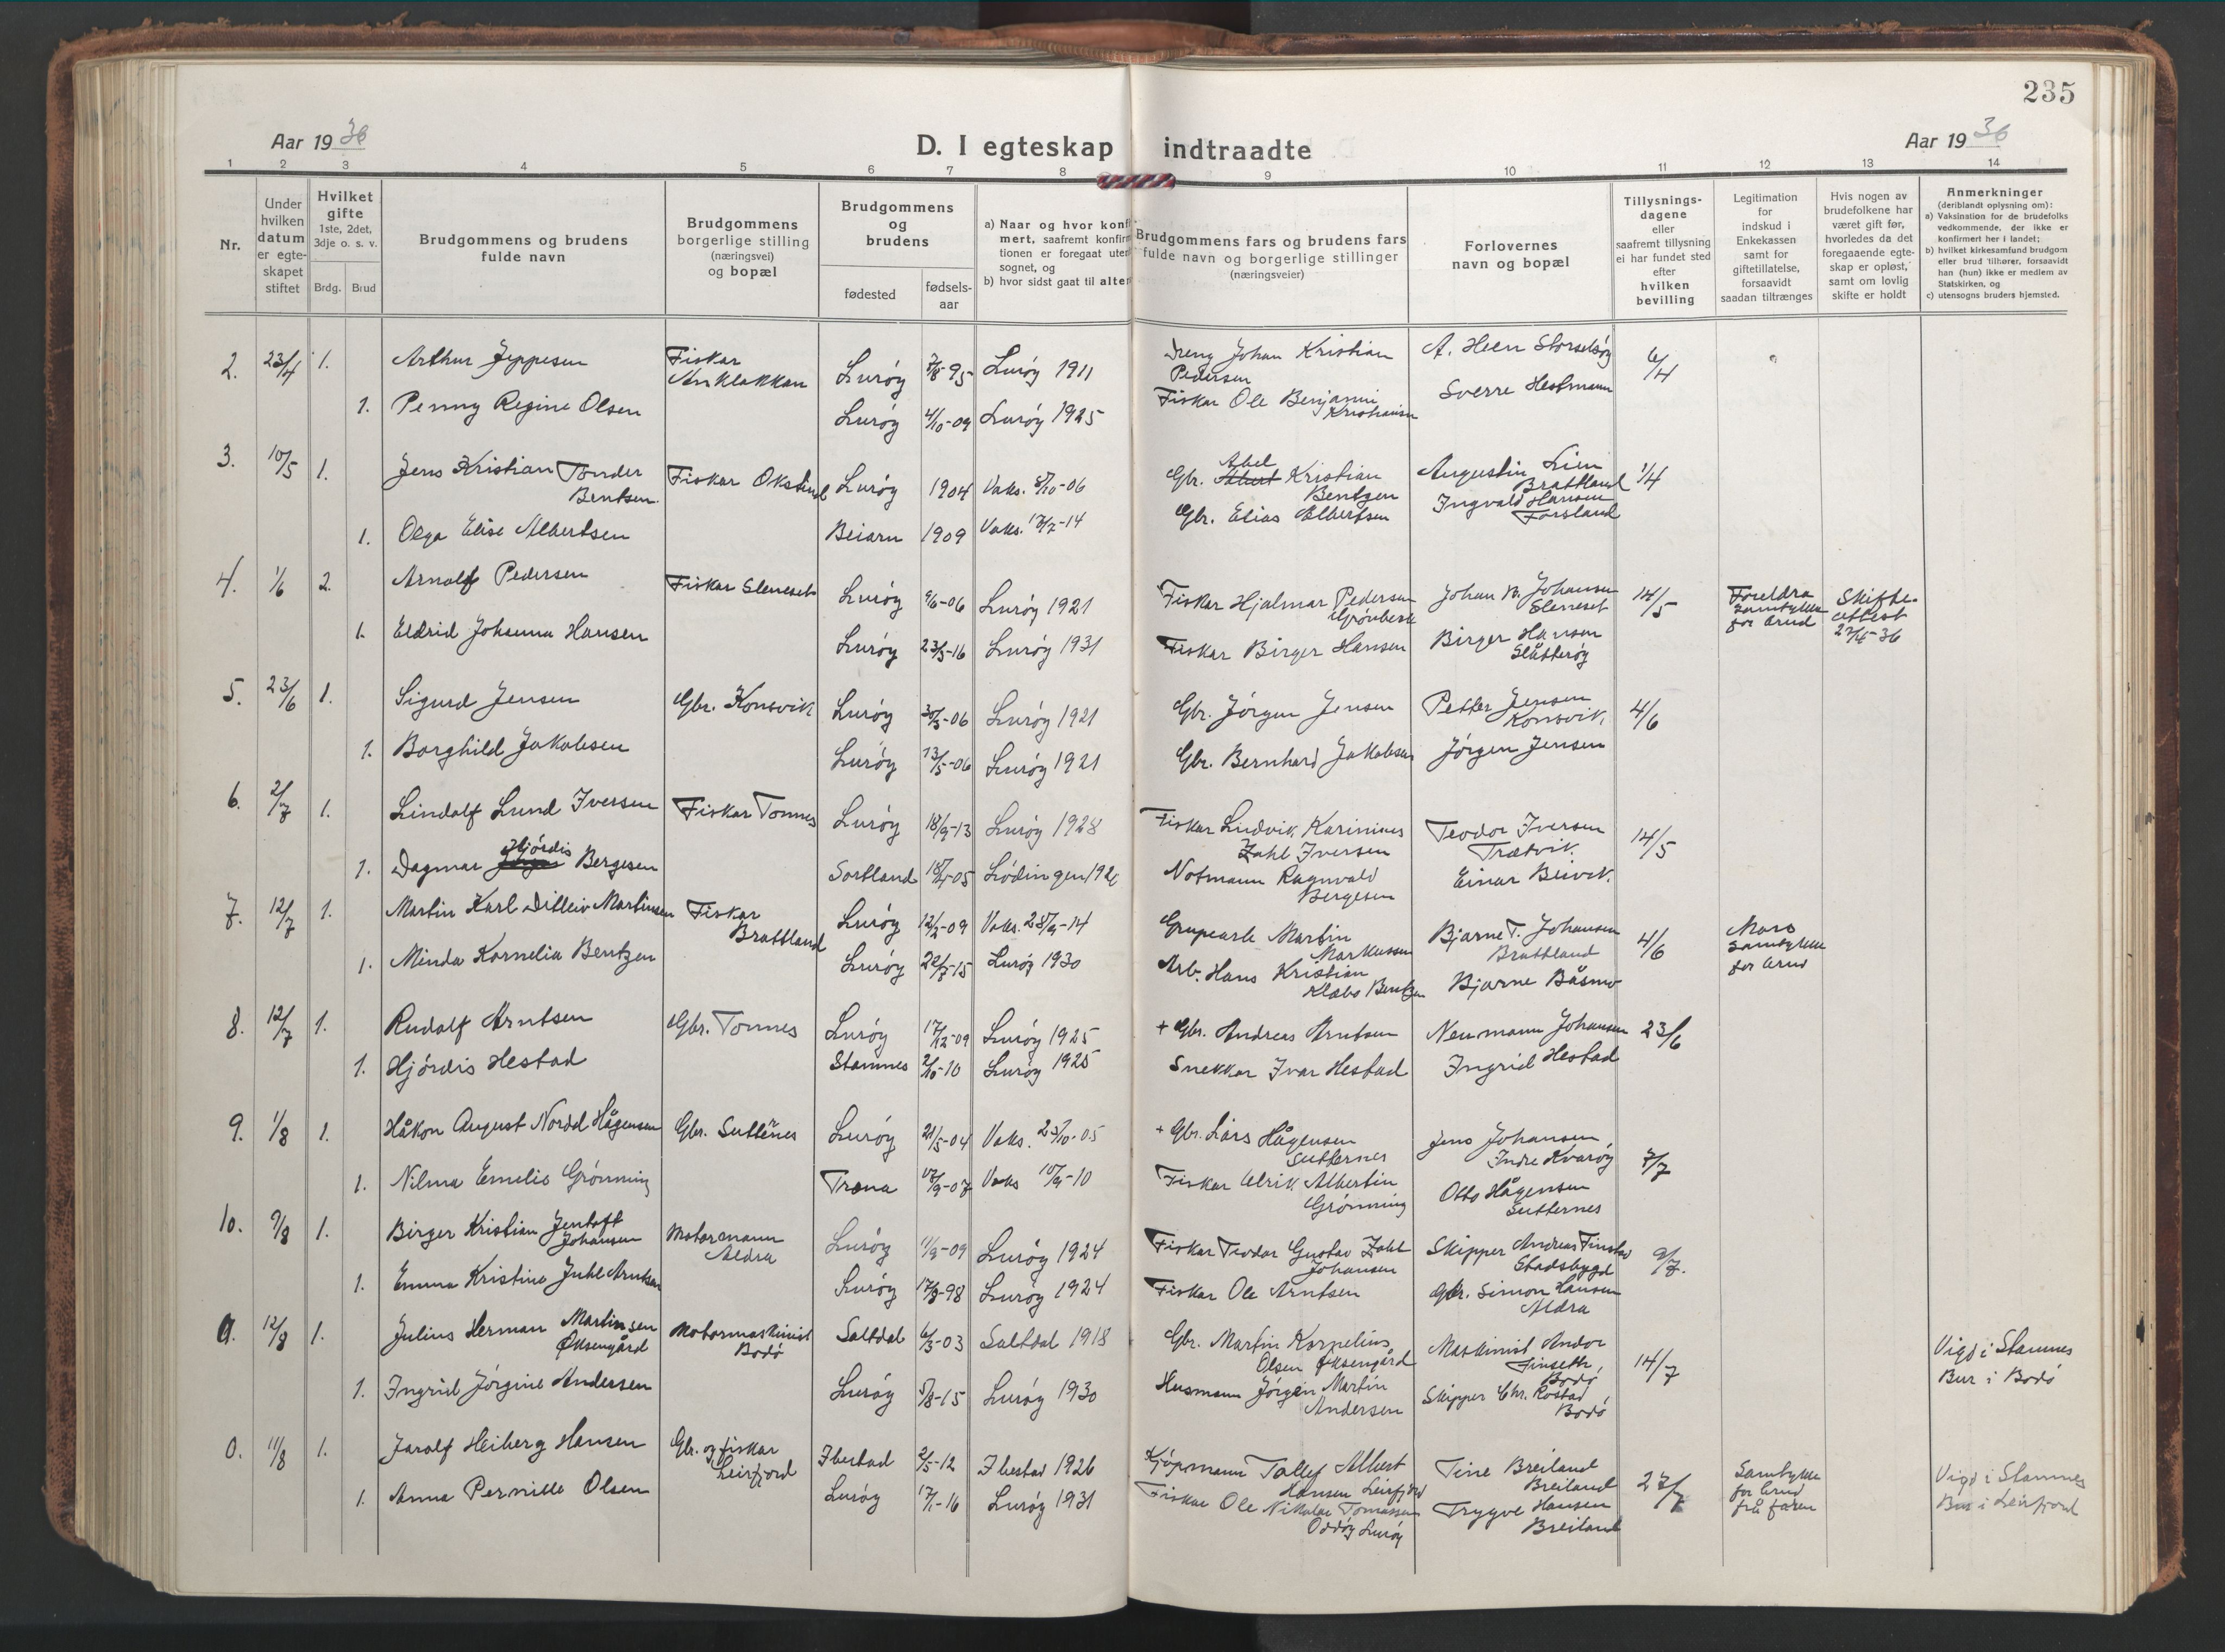 235
Aar 1936
D. I egteskap indtraadte
Aar 1936
1 2 3 4 5 6 7 8 9 10 11 12 13 14
Nr.
Under hvilken datum er egte-skapet stiftet
Hvilket gifte 1ste, 2det, 3dje o. s. v.
Brdg. Brud
Brudgommens og brudens fulde navn
Brudgommens borgerlige stilling (næringsvei) og bopæl
Brudgommens og brudens
fødested
fødsels-aar
a) Naar og hvor konfi
mert, saafremt konfirm
tionen er foregaat uten
sognet, og
b) hvor sidst gaat til alter
Brudgommens fars og brudens fars
fulde navn og borgerlige stillinger
(næringsveier)
Forlovernes
navn og bopæl
Tillysnings-
dagene
eller
saafremt tillysning
ei har fundet sted
efter
hvilken
bevilling
Legitimation
for
indskud i
Enkekassen
samt for
giftetillatelse,
forsaavidt
saadan tiltrænges
Hvis nogen av
brudefolkene har
været gift før,
hvorledes da det
foregaaende egte-
skap er opløst,
samt om lovlig
skifte er holdt
Anmerkninger
(deriblandt oplysning om):
a) Vaksination for de brudefolks
vedkommende, der ikke er
konfirmert her i landet;
b) hvilket kirkesamfund brudgom
eller brud tilhører, forsaavidt
han (hun) ikke er medlem av
Statskirken, og
c) utensogns bruders hjemsted.
2. 23/4 1. Arthur Jeppesen Fiskar Anklakkan Lurøy 7/8-95 Lurøy 1911 Dreng Johan Kristian Pedersen A. Heen Storselsøy 6/4
1. Penny Regine Olsen Lurøy 4/10-09 Lurøy 1925 Fiskar Ole Benjamin Kristiansen Sverre Hestmann
3. 10/5 1. Jens Kristian Tønder Bentsen Fiskar Lurøy 1904 Vaks. 8/10-06 Gbr. Abel Kristian Bentzen Augustin Lien Brattland 1/4
1. Olga Elise Albertsen Beiarn 1909 Vaks. 17/7-14 Gbr. Elias Albertsen Ingvald Hansen Forsland
4. 1/6 2. Arnolf Pedersen Fiskar Sleneset Lurøy 9/6-06 Lurøy 1921 Fiskar Hjalmar Pedersen Grønbech Johan N. Johansen Sleneset 14/5 Foreldra samtykke for brud Skifte-attest 27/5-36
1. Eldrid Johanna Hansen Lurøy 23/3-16 Lurøy 1931 Fiskar Birger Hansen Birger Hansen Slåtterøy
5. 23/6 1. Sigurd Jensen Gbr. Konsvik Lurøy 30/3-06 Lurøy 1921 Gbr. Jørgen Jensen Petter Jensen Konsvik. 4/6
1. Borghild Jakobsen Lurøy 13/5-06 Lurøy 1921 Gbr. Bernhard Jakobsen Jørgen Jensen
6. 2/7 1. Lindolf Lund Iversen Fiskar Tonnes Lurøy 18/9-13 Lurøy 1928 Fiskar Ludvik Karinius Zahl Iversen Teodor Iversen Trætvik. 14/5
1. Dagmar Hjørdis Bergesen Sortland 18/4-05 Lødingen Notmann Ragnvald Bergesen Einar Beivik.
7. 12/7 1. Martin Karl Ditleiv Martinsen Fiskar Brattland Lurøy 12/2-09 Vaks. 28/9-14 Grupearb Martin Markussen Bjarne T. Johansen Brattland 4/6 Mors samtykke for brud
1. Minda Kornelia Bentzen Lurøy 22/7-15 Lurøy 1930 Arb. Hans Kristian Klæbo Bentzen Bjarne Båsmo
8. 12/7 1. Rudolf Arntsen Gbr. Tonnes Lurøy 17/12-09 Lurøy 1925 + Gbr. Andreas Arntsen Neumann Johansen 23/6
1. Hjørdis Hestad Stamnes 2/10-10 Lurøy 1925 Snekkar Ivar Hestad Ingrid Hestad
9. 1/8 1. Håkon August Nordal Hågensen Gbr. Sutternes Lurøy 21/5-04 Vaks. 25/10-05 + Gbr. Lars Hågensen Sutternes Jens Johansen, Indre Kvarøy 7/7
1. Nilma Emelie Grønning Træna 12/9-07 Vaks 10/9-10 Fiskar Ulrik Albertin Grønning Otto Hågensen Sutternes
10. 9/8 1. Birger Kristian Jentoft Johansen Motormann Aldra Lurøy 11/9-09 Lurøy 1924 Fiskar Teodor Gustav Zahl Johansen Skipper Andreas Finstad Stadsbygd 9/7.
1. Emma Kristine Juhl Arntsen Lurøy 17/8-98 Lurøy 1924 Fiskar Ole Arntsen Gbr. Simon Hansen Aldra
0. 12/8 1. Julius Herman Martinsen Øksengård Motormaskinist Bodø Saltdal 6/3-03 Saltdal 1918 Gbr. Martin Kornelius Olsen Øksengård Maskinist Andor Finseth, Bodø 14/7 Vigd i Stamnes Bur i Bodø
1. Ingrid Jørgine Andersen Lurøy 5/8-15 Lurøy 1930 Husmann Jørgen Martin Andersen Skipper Chr. Rostad, Bodø
0. 11/8 1. Jarolf Heiberg Hansen Gbr. og fiskar Leirfjord Ibestad 2/5-12 Ibestad 1926 Kjøpmann Tollef Albert Hansen Leirfjord Tine Breiland Breiland 27/7 Samtykke for brud frå faren Vigd i Stamnes Bur i Leirfjord
1. Anna Pernille Olsen Lurøy 17/1-16 Lurøy 1931 Fiskar Ole Nikolai Tomassen Oddøy Lurøy Trygve Hansen Breiland